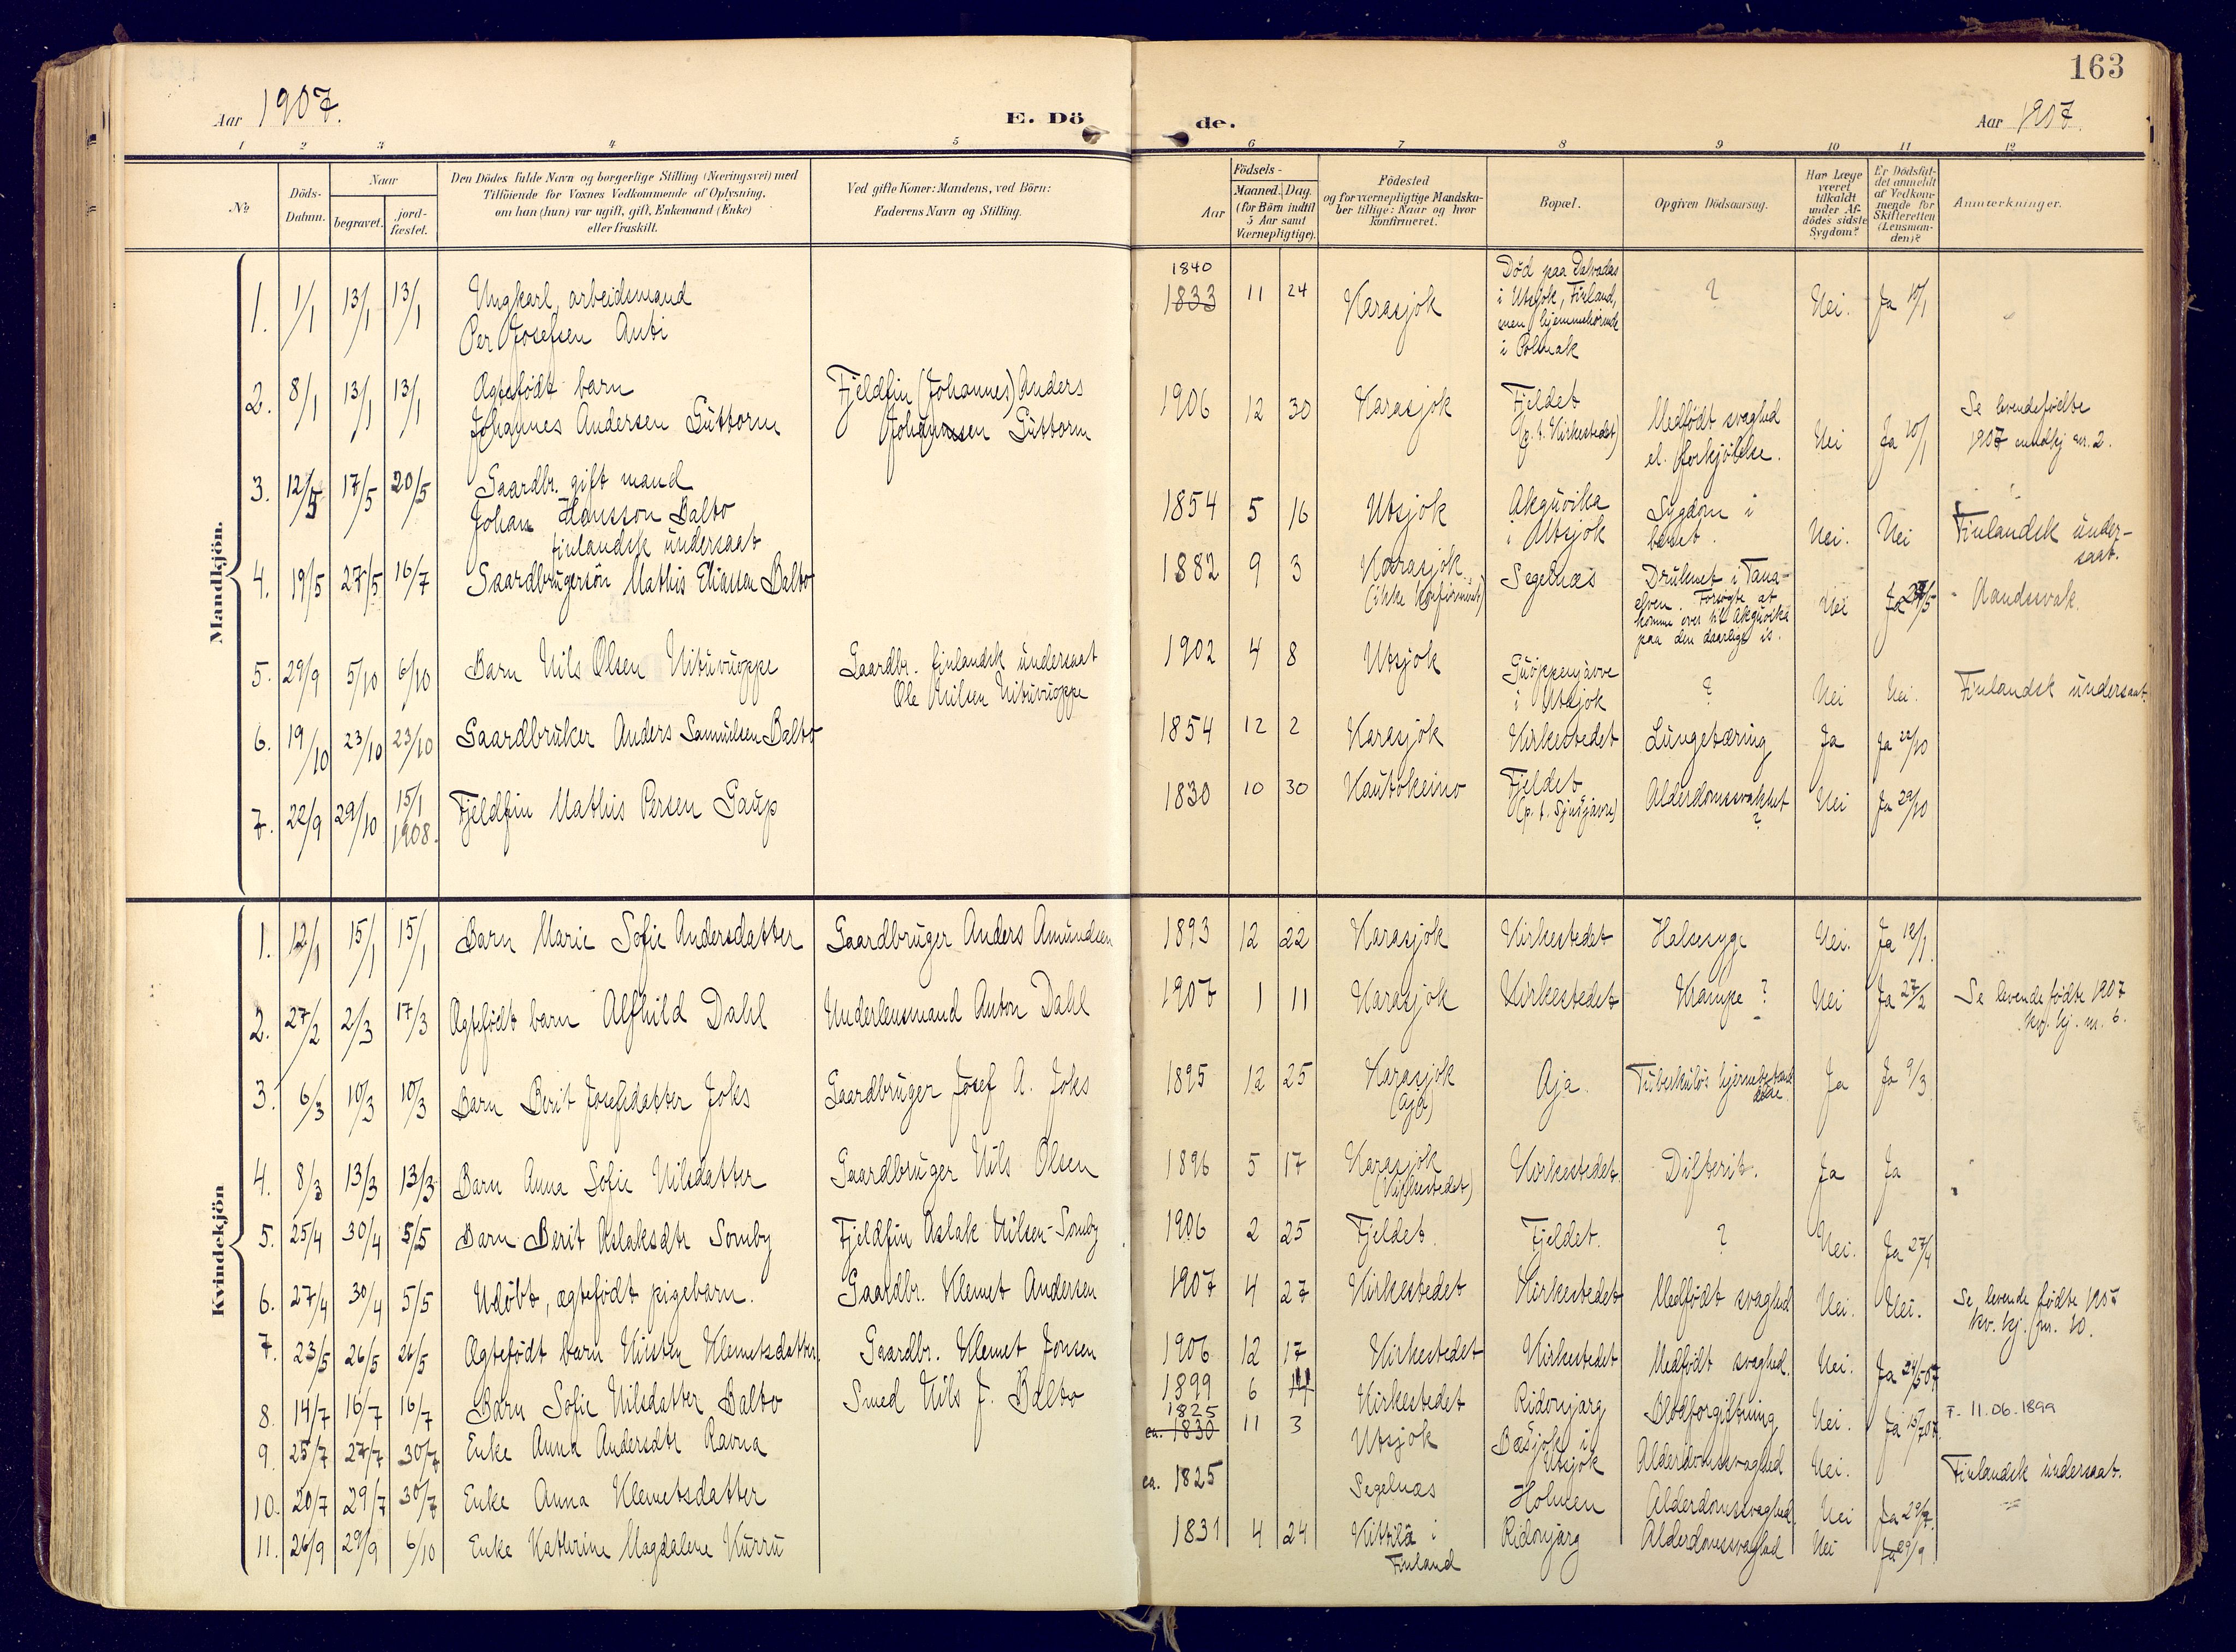 163
Aar 1907.
E. Dö
de.
Aar 1907.
1 2 3 4 5 6 7 8 9 10 11 12
No
Döds-Datum.
Naar
begravet.
jord-fæstet.
Den Dödes fulde Navn og borgerlige Stilling (Næringsvei) med
Tilföiende for Voxnes Vedkommende af Oplysning,
om han (hun) var ugift, gift, Enkemand (Enke)
eller fraskilt.
Ved gifte Koner: Mandens, ved Börn:
Faderens Navn og Stilling.
Födsels-
Aar
Maaned. Dag.
(for Börn indtil
5 Aar samt
Værnepligtige).
Födested
og for værnepligtige Mandska-
ber tillige: Naar og hvor
konfirmeret.
Bopæl.
Opgiven Dödsaarsag.
Har Læge
været
tilkaldt
under Af-
dödes sidste
Sygdom?
Er Dödsfal-
det anmeldt
af Vedkom-
mende for
Skifteretten
(Lensman-
den)?
Anmærkninger.
Mandkjön.
1. 1/1 13/1 13/1 Ungkarl, arbeidsmand
Per Josefsen Anti
1840
1833 11 24 Karasjok
Död paa Dalvadas
i Utsjok, Finland,
men hjemmehörende
i Polmak
? Nei. Ja 10/1
2. 8/1 13/1 13/1 Ægtefödt barn
Johannes Andersen Guttorm
Fjeldfin (Johannes) Anders
Johannsen Guttorm
1906 12 30 Karasjok
Fjeldet
(p. t. Kirkestedet)
Medfödt svaghed
el. forkjölelse.
Nei Ja 10/1
Se levendefödte
1907 mandkj nr. 2.
3. 12/5 17/5 20/5 Gaardbr. gift mand
Johan Hansson Balto
finlandsk undersaat
1854 5 16 Utsjok
Akguvika
i Utsjok
Sygdom i
benet.
Nei. Nei
Finlandsk under-
saat.
4. 19/5 27/5 16/7 Gaardbrugersön Mathis Eliassen Balto
1882 9 3 Karasjok
(ikke konfirmert)
Segelnæs
Druknet i Tana-
elven. Forsögte at
komme over til Akguvika
paa den daarlige is.
Nei Ja 27/5 Aandssvak.
5. 29/9 5/10 6/10 Barn Nils Olsen Nituvuoppe
Gaardbr. finlandsk undersaat
Ole Nilsen Nituvuoppe
1902 4 8 Utsjok
Guoppenjavve
i Utsjok
? Nei Nei. Finlandsk undersaat.
6. 19/10 23/10 23/10 Gaardbruker Anders Samuelsen Balto
1854 12 2 Karasjok Kirkestedet Lungetæring Ja Ja 22/10
7. 22/9 29/10 15/1 1908. Fjeldfin Mathis Persen Gaup
1830 10 30 Kautokeino
Fjeldet
Alderdomssvakhet
?
Nei Ja 29/10
Kvindekjön
1. 12/1 15/1 15/1 Barn Marie Sofie Andersdatter Gaardbruger Anders Amundsen
1893 12 22 Karasjok Kirkestedet Halssyge Nei. Ja 12/1
2. 27/2 2/3 17/3 Ægtefödt barn Alfhild Dahl Underlensmand Anton Dahl
1907 1 11 Karasjok Kirkestedet Krampe ? Nei Ja 27/2
Se levende födte 1907
kv. kj. nr. 6.
3. 6/3 10/3 10/3 Barn Berit Josefsdatter Joks Gaardbruger Josef A. Joks
1895 12 25 Karasjok
(Aja)
Aja. Tuberkulös hjernebetænd
Ja Ja 9/3
4. 8/3 13/3 13/3 Barn Anna Sofie Nilsdatter Gaardbruger Nils Olsen
1896 5 17 Karasjok
(Kirkestedet)
Kirkestedet Difterit. Ja Ja
5. 25/4 30/4 5/5 Barn Berit Aslaksdtr Somby Fjeldfin Aslak Nilsen-Somby
1906 2 25 Fjeldet. Fjeldet. ? Nei. Ja 27/4
6. 27/4 30/4 5/5 Udöbt, ægtefödt pigebarn. Gaardbr. Klemet Andersen
1907 4 27 Kirkestedet Kirkestedet Medfödt svaghed Nei. Nei.
Se levende födte 1907
kv. kj. nr. 10.
7. 23/5 26/5 26/5 Ægtefödt barn Kirsten Klemetsdatter. Gaardbr. Klemet Jonsen
1906 12 17 Kirkestedet Kirkestedet Medfödt svaghed. Nei. Ja 24/5 07
8. 14/7 16/7 16/7 Barn Sofie Nilsdatter Balto Smed Nils J. Balto
1899 6 11 Kirkestedet Ridonjarg Blodforgiftning Nei. Ja 15/7 07. F. 11.06.1899
9. 25/7 27/7 30/7 Enke Anna Andersdtr Ravna
1825
ca. 1830 11 3 Utsjok
Bæsjok i
Utsjok
Alderdomssvaghed Nei.
Finlandsk undersaat.
10. 20/7 29/7 30/7 Enke Anna Klemetsdatter
ca. 1825 Segelnæs Holmen Alderdomssvaghed. Nei Ja 29/7.
11. 26/9 29/9 6/10 Enke Kathrine Magdalene Kurru
1831 4 24 Kittilä i
Finland
Ridonjarg Alderdomssvaghed Nei Ja 29/9